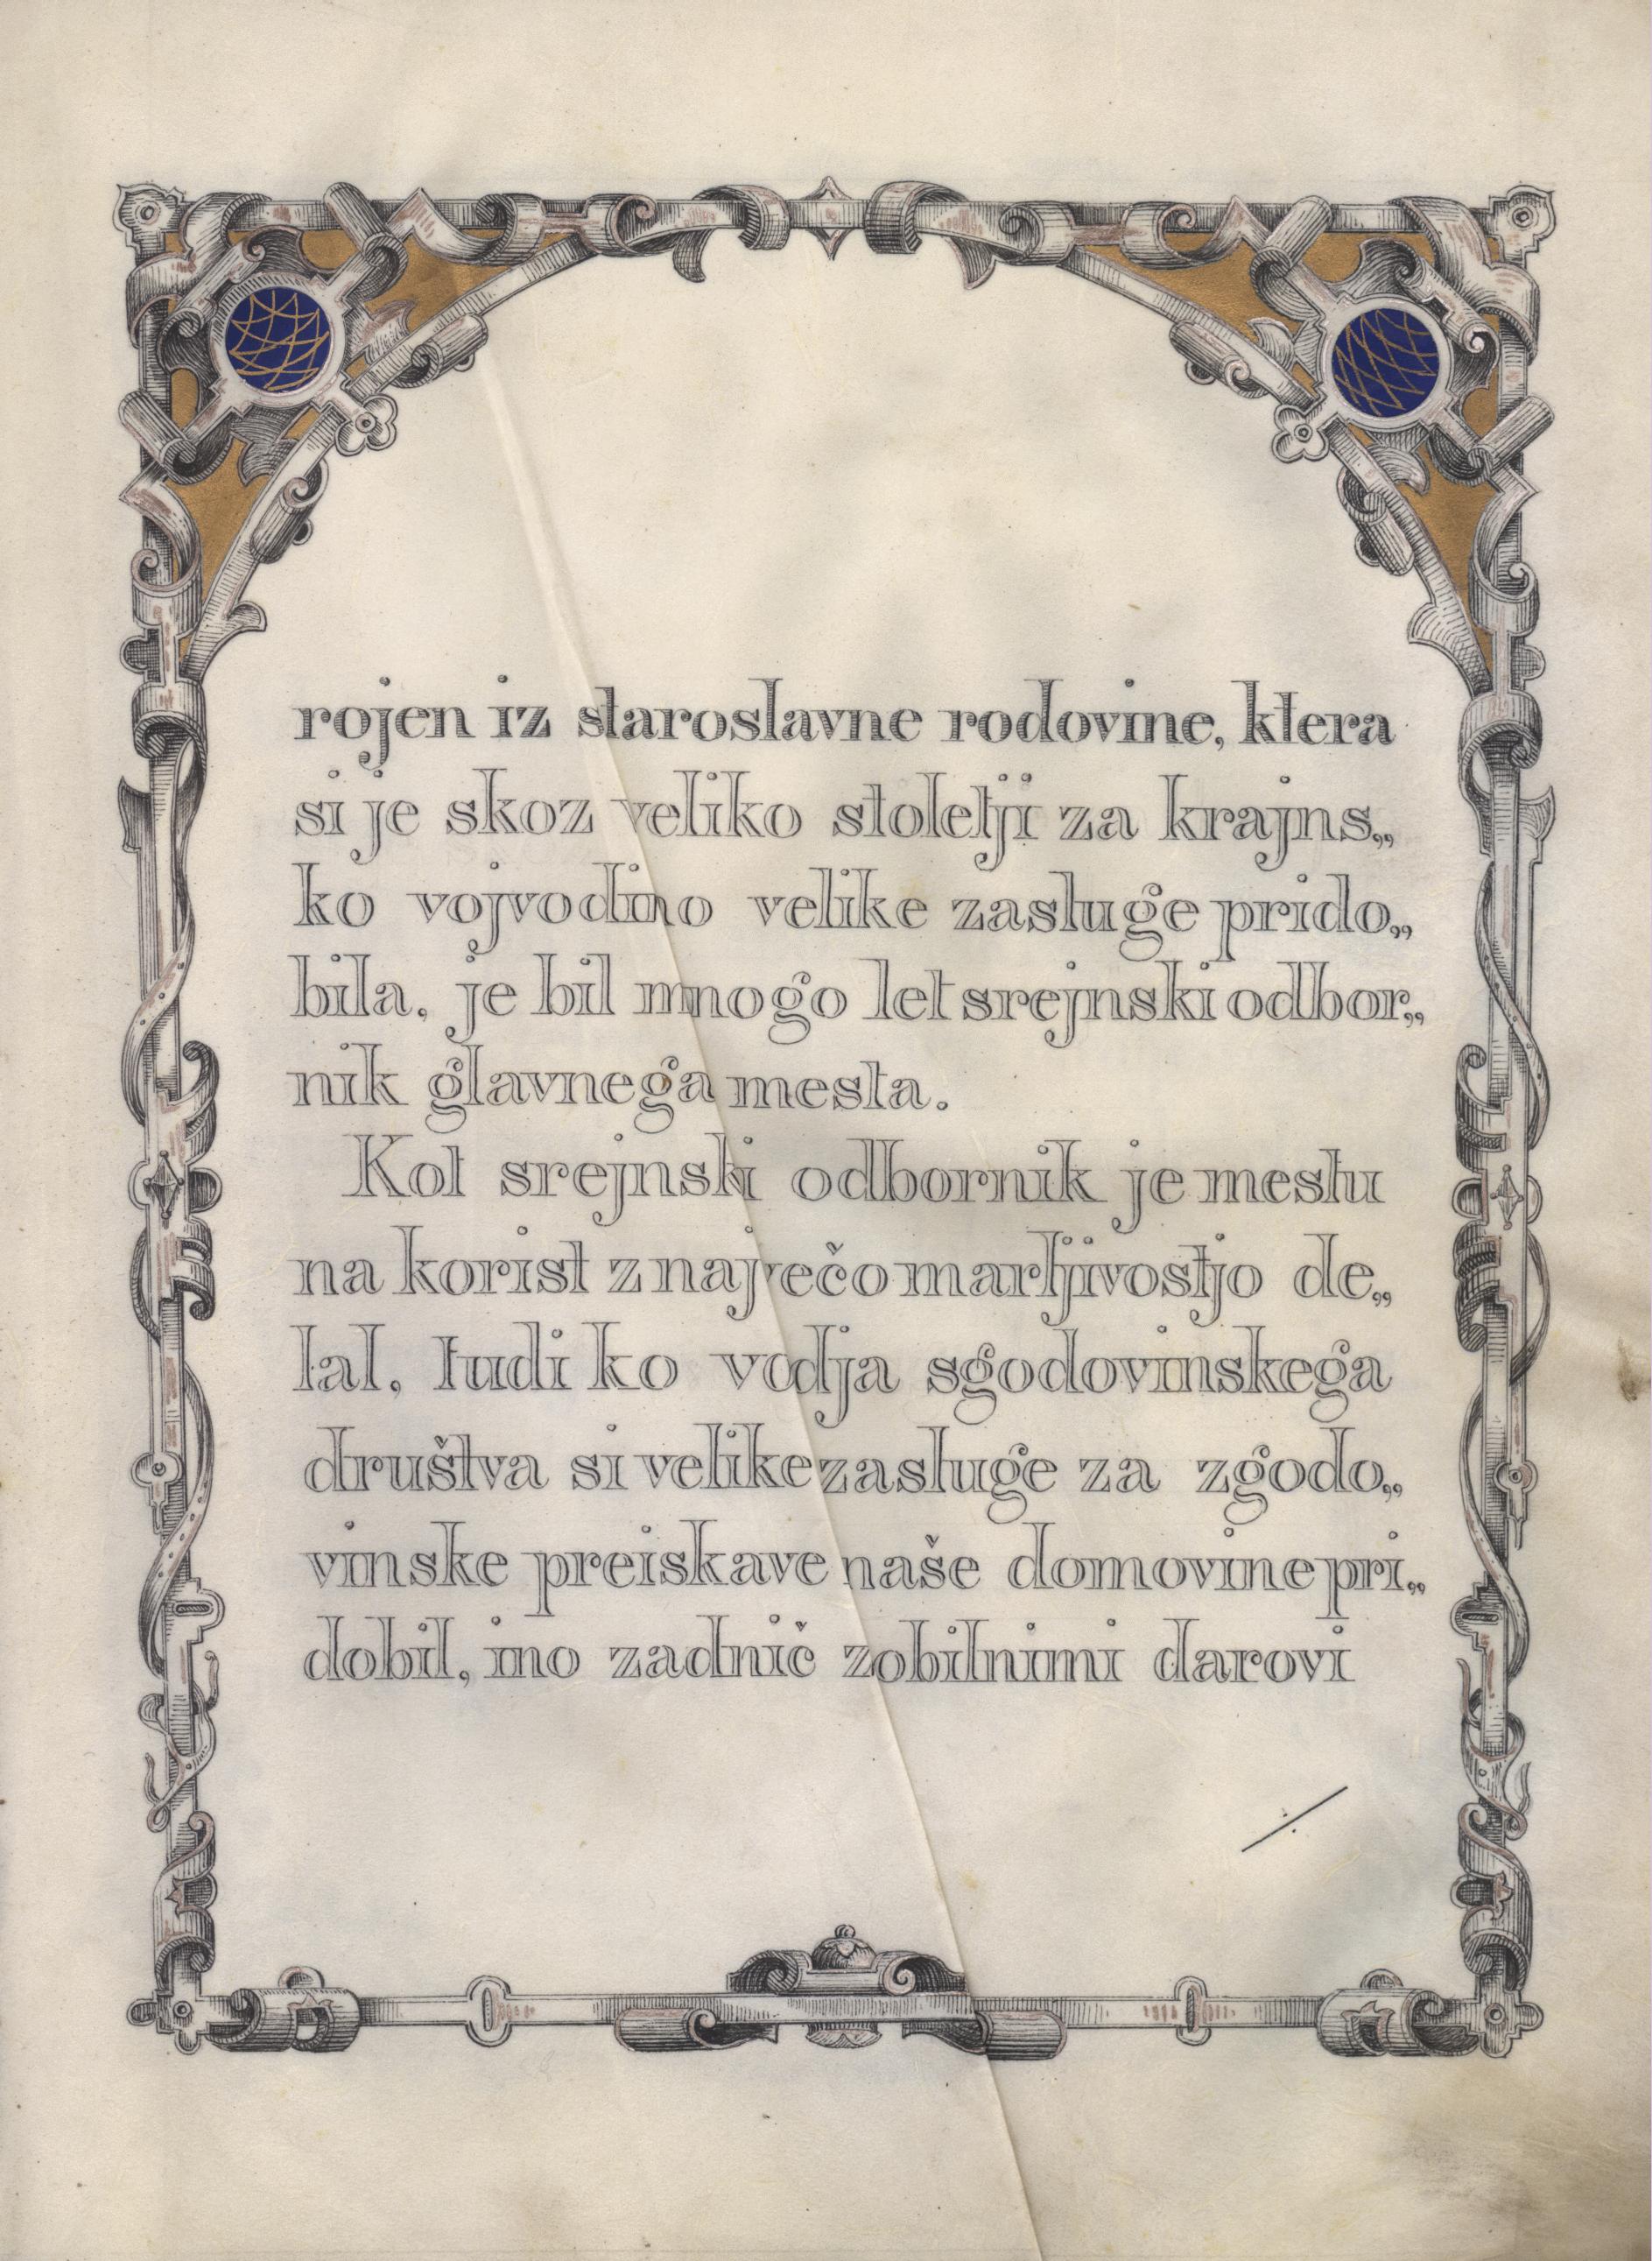 rojen iz staroslavne rodovine, ktera
si je skoz veliko stoletji za krajns„
ko vojvodino velike zasluge prido„
bila, je bil mnogo let srejnski odbor„
nik glavnega mesta.
Kot srejnski odbornik je mestu
na korist z največo marljivostjo de„
lal, tudi ko vodja sgodovinskega
društva si velike zasluge za zgodo„
vinske preiskave naše domovine pri„
dobil, ino zadnič zobilnimi darovi